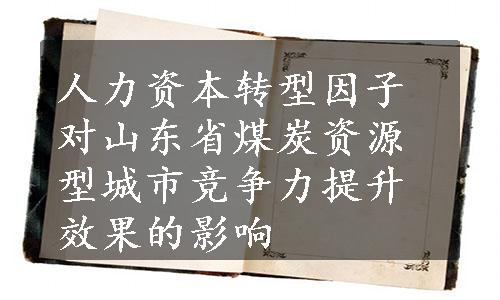 人力资本转型因子
对山东省煤炭资源
型城市竞争力提升
效果的影响